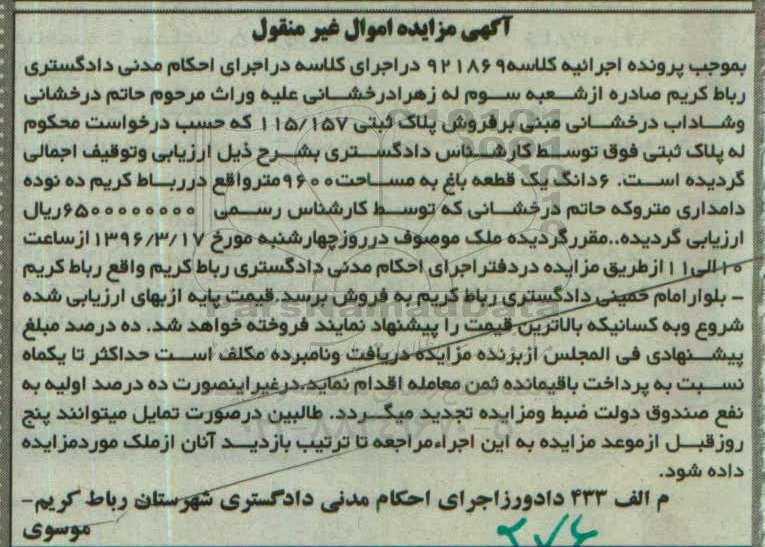 آگهی مزایده اموال غیر منقول
بموجب پرونده اجرائیه کلاسه۹۲۱۸۶۹ دراجرای کلاسه دراجرای احکام مدنی دادگستری
رباط کریم صادره ازشعبه سوم له زهرادرخشانی علیه وراث مرحوم حاتم درخشانی
وشاداب درخشانی مبنی برفروش پلاک ثبتی ۱۱۵/۱۵۷ که حسب درخواست محکوم
له پلاک ثبتی فوق توسط کارشناس دادگستری بشرح ذیل ارزیابی وتوقیف اجمالی
گردیده است. ۶دانگ یک قطعه باغ به مساحت۹۶۰۰مترواقع دررباط کریم ده نوده
دامداری متروکه حاتم درخشانی که توسط کارشناس رسمی ۶۵۰۰۰۰۰۰۰۰۰ریال
ارزیابی گردیده..مقررگردیده ملک موصوف درروزچهارشنبه مورخ ۱۳۹۶/۳/۱۷ ازساعت
۱۰الی۱۱ازطریق مزایده دردفتراجرای احکام مدنی دادگستری رباط کریم واقع رباط کریم
– بلوارامام خمینی دادگستری رباط کریم به فروش برسد.قیمت پایه ازبهای ارزیابی شده
شروع وبه کسانیکه بالاترین قیمت را پیشنهاد نمایند فروخته خواهد شد. ده درصد مبلغ
پیشنهادی فی المجلس ازبرنده مزایده دریافت ونامبرده مکلف است حداکثر تا یکماه
نسبت به پرداخت باقیمانده ثمن معامله اقدام نماید.درغیراینصورت ده درصد اولیه به
نفع صندوق دولت ضبط ومزایده تجدید میگردد. طالبین درصورت تمایل میتوانند پنج
روزقبل ازموعد مزایده به این اجراءمراجعه تا ترتیب بازدید آنان ازملک موردمزایده
داده شود.
م الف ۴۳۳ دادورزاجرای احکام مدنی دادگستری شهرستان رباط کریم–
موسوی
۲۷۶